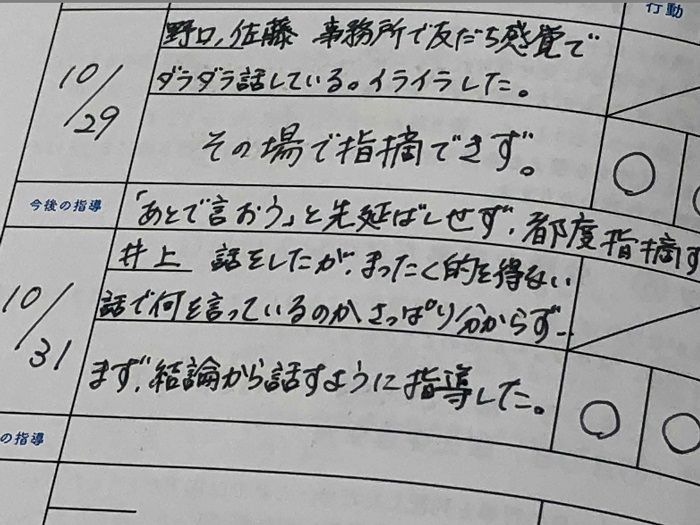 行動
10/29
野口、佐藤 事務所で友だち感覚で
ダラダラ話している。イライラした。
その場で指摘できず。
○
今後の指導
「あとで言おう」と先延ばしせず、都度指摘す
10/31
井上 話をしたが、まったく的を得ない
話で何を言っているのかさっぱり分からず…
まず、結論から話すように指導した。
○ ○
の指導